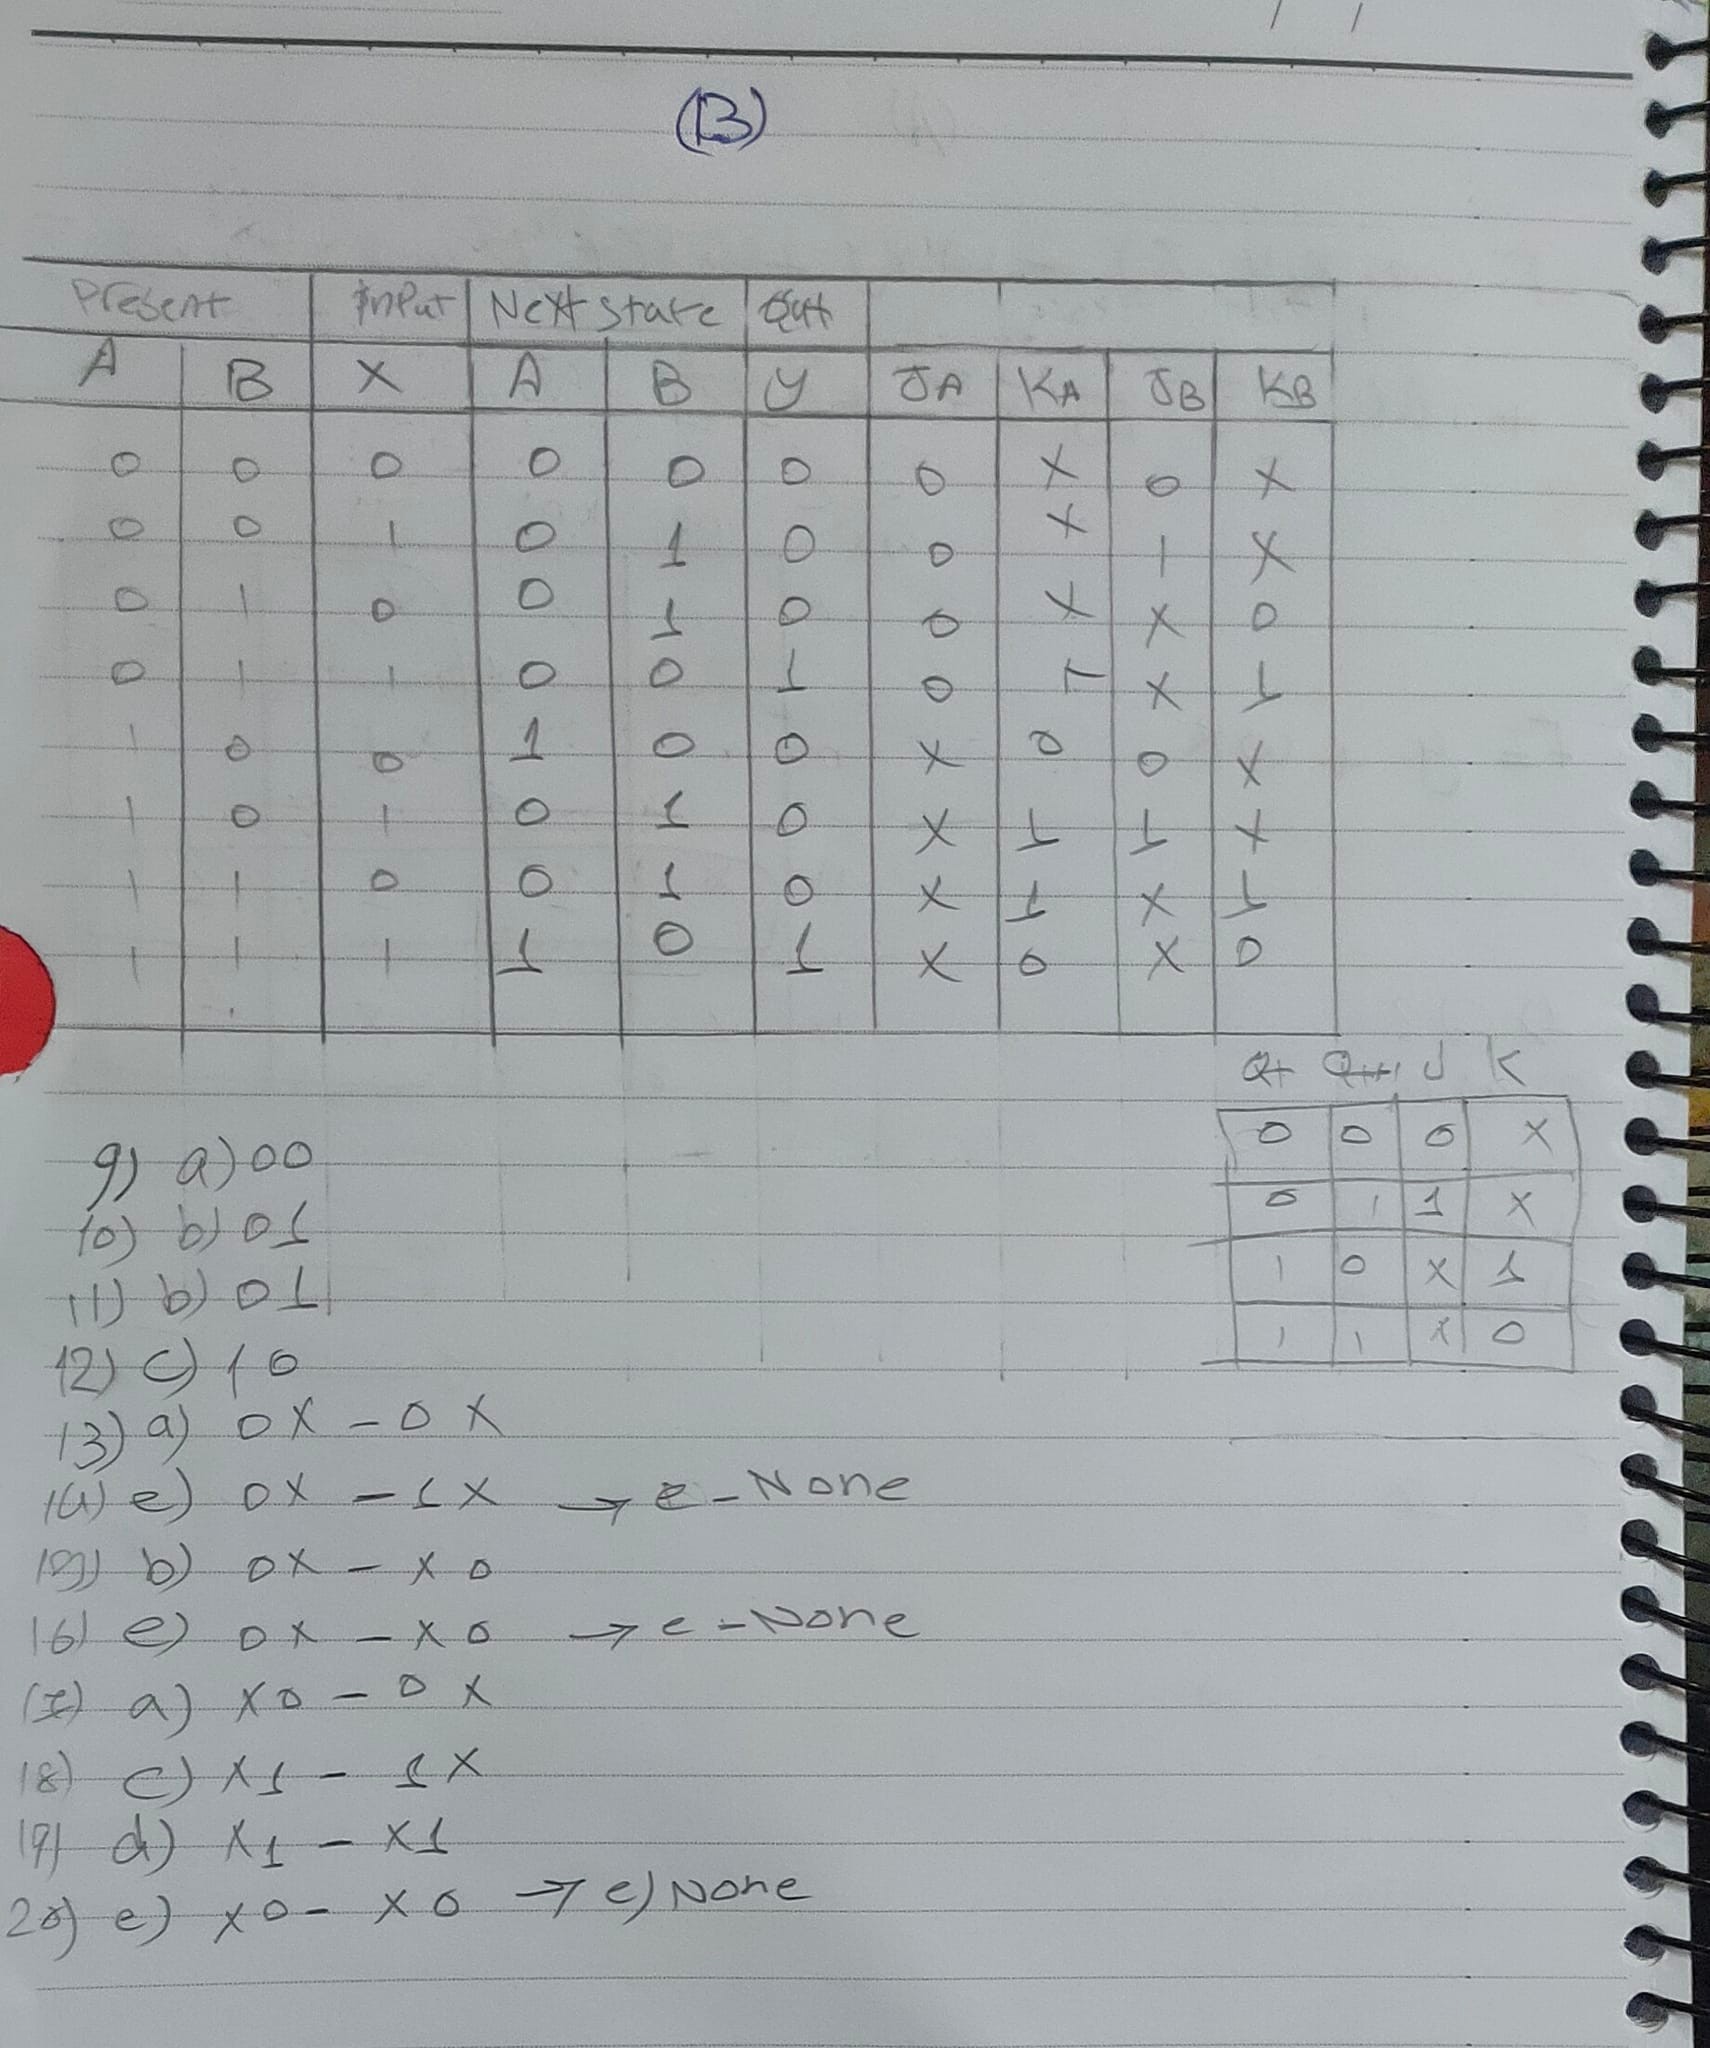 (B)
Present Input Next state Out
A B X A B y JA KA JB KB
0 0 0 0 0 0 0 X 0 X
0 0 1 0 1 0 0 X 1 X
0 1 0 0 1 0 0 X X 0
0 1 1 0 0 1 0 T X 1
1 0 0 1 0 0 X 0 0 X
1 0 1 0 1 0 X 1 1 X
1 1 0 0 1 0 X 1 X 1
1 1 1 1 0 1 X 0 X 0
Qt Qt+1 J K
0 0 0 X
0 1 1 X
1 0 X 1
1 1 X 0
9) a) 00
10) b) 01
11) b) 01
12) c) 10
13) a) 0X - 0X
14) e) 0X - 1X → e - None
15) b) 0X - X0
16) e) 0X - X0 → e - None
17) a) X0 - 0X
18) c) X1 - 1X
19) d) X1 - X1
20) e) X0 - X0 → e) None